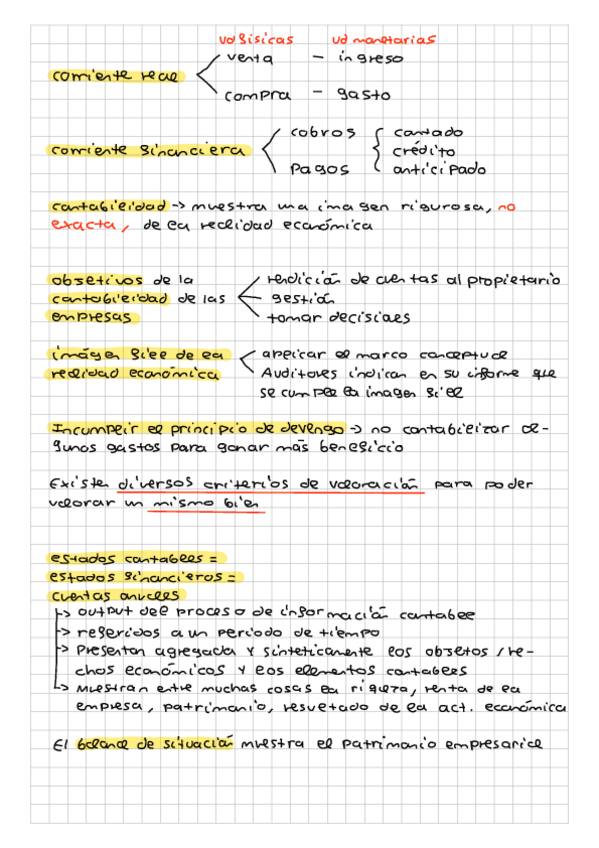 ud físicas ud monetarias
venta – ingreso
corriente real
compra – gasto
cobros contado
corriente financiera crédito
pagos anticipado
contabilidad -> muestra una imagen rigurosa, no
exacta, de la realidad económica
objetivos de la rendición de cuentas al propietario
contabilidad de las gestión
empresas tomar decisiones
imágen fiel de la aplicar el marco conceptual
realidad económica Auditores indican en su informe que
se cumple la imagen fiel
Incumplir el principio de devengo -> no contabilizar al-
gunos gastos para ganar más beneficio
Existen diversos criterios de valoración para poder
valorar un mismo bien
estados contables =
estados financieros =
cuentas anuales
-> output del proceso de información contable
-> referidos a un periodo de tiempo
-> Presentan agregada y sinteticamente los objetos / he-
chos económicos y los elementos contables
-> Muestran entre muchas cosas la riqueza, renta de la
empresa, patrimonio, resultado de la act. económica
El balance de situación muestra el patrimonio empresarial